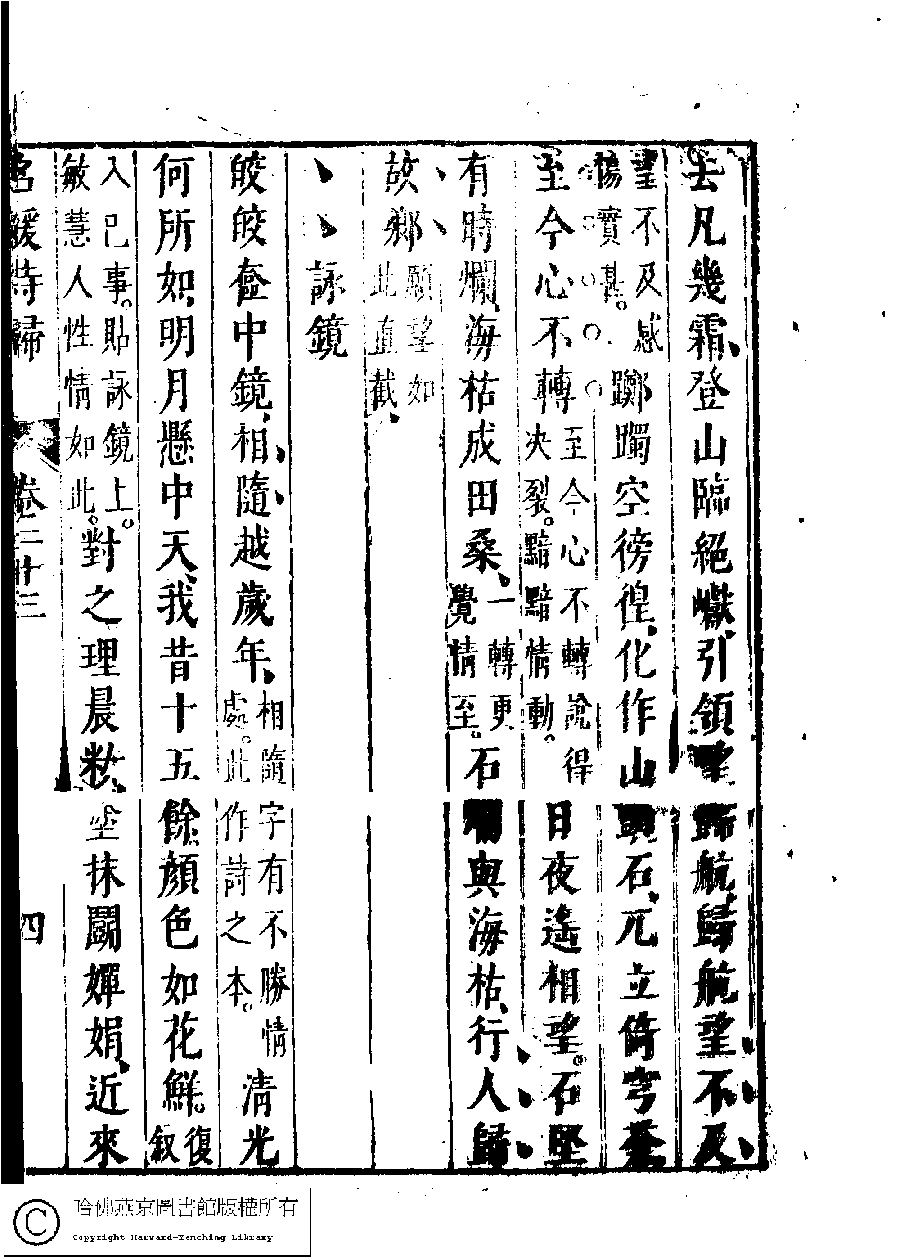 去凡幾霜、登山臨絕巘、引領望歸航、歸航望不及
望不及感傷實甚。躑躅空徬徨、化作山頭石、兀立倚穹蒼
至今心不轉至今心不轉說得決裂。黯黯情動。日夜遙相望。石堅
有時爛、海枯成田桑、一轉更覺情至。石爛與海枯、行人歸
故鄉願望如此直截、
詠鏡
皎皎奩中鏡、相隨越歲年、相隨字有不勝情處。此作詩之本。清光
何所如、明月懸中天、我昔十五餘、顏色如花鮮。復叙
入已事。貼詠鏡上。敏慧人性情如此。對之理晨粧、坐抹鬪嬋娟、近來
名媛詩歸 卷三十三 四
哈佛燕京圖書館版權所有
Copyright Harvard-Yenching Library